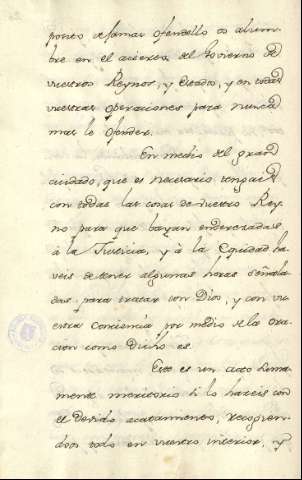 posito de jamas ofendello os alum-
bre en el acierto del Govierno de
vuestros Reynos, y Estado, y en todas
vuestras operaciones para nunca
mas le ofender.
En medio del grand
cuidado, que es necesario tengais
con todas las cosas de vuestro Rey-
no para que bayan enderezadas
à la Justicia, y à la Equidad ha-
veis de tener algunas horas señala-
das para tratar con Dios, y con vu-
estra conciencia por medio de la ora-
cion como dicho es.
Este es un acto suma-
mente meritorio si lo haceis con
el devido acatamiento, recogien-
doos todo en vuestro interior, y